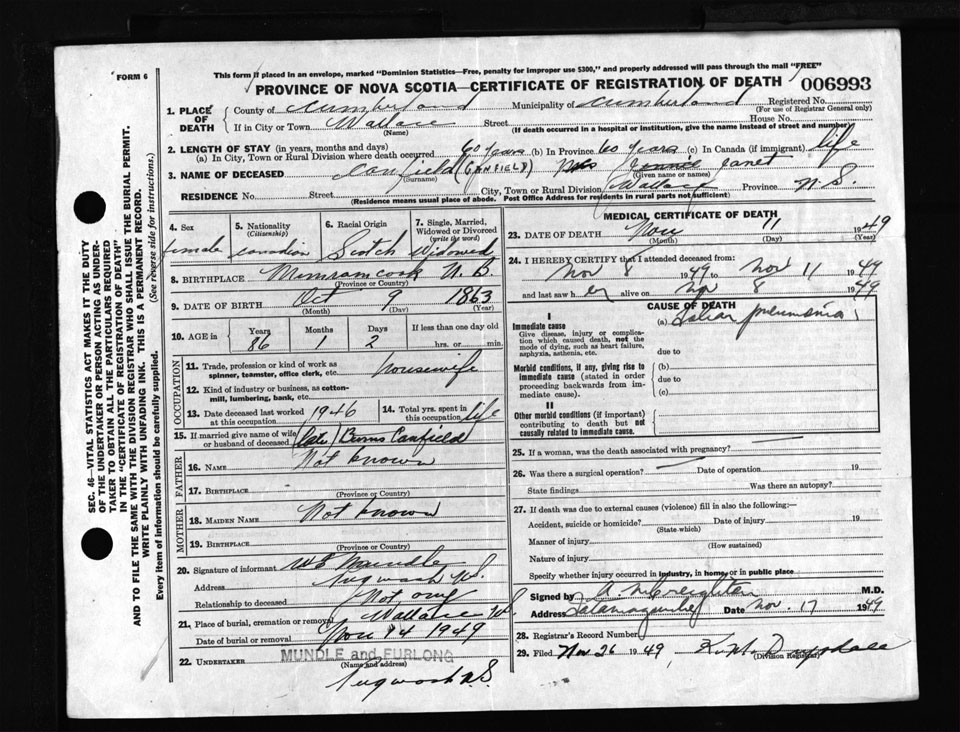 This form if placed in an envelope, marked "Dominion Statistics—Free, penalty for improper use $300," and properly addressed will pass through the mail "FREE"
FORM 6
PROVINCE OF NOVA SCOTIA—CERTIFICATE OF REGISTRATION OF DEATH 006993
1. PLACE OF DEATH County of Cumberland Municipality of Cumberland Registered No.
(For use of Registrar General only)
If in City or Town Wallace Street House No.
(Name) (If death occurred in a hospital or institution, give the name instead of street and number)
2. LENGTH OF STAY (in years, months and days)
(a) In City, Town or Rural Division where death occurred 60 years (b) In Province 60 years (c) In Canada (if immigrant) life
3. NAME OF DECEASED Canfield (CANFIELD) Mrs Janet
(Given name or names)
RESIDENCE No. Street City, Town or Rural Division Wallace Province N.S.
(Residence means usual place of abode. Post Office Address for residents in rural parts not sufficient)
4. Sex
female
5. Nationality
(Citizenship)
Canadian
6. Racial Origin
Scotch
7. Single, Married, Widowed or Divorced
(write the word)
Widowed
8. BIRTHPLACE Memramcook N.B.
(Province or Country)
9. DATE OF BIRTH Oct 9 1863
(Month) (Day) (Year)
10. AGE in Years Months Days If less than one day old
86 1 2 hrs. or min.
OCCUPATION
11. Trade, profession or kind of work as spinner, teamster, office clerk, etc. Housewife
12. Kind of industry or business, as cotton-mill, lumbering, bank, etc.
13. Date deceased last worked at this occupation 1946
14. Total yrs. spent in this occupation life
15. If married give name of wife or husband of deceased (late) Burns Canfield
FATHER
16. NAME Not known
17. BIRTHPLACE
(Province or Country)
MOTHER
18. MAIDEN NAME Not known
19. BIRTHPLACE
(Province or Country)
20. Signature of informant W E Mundle
Address Pugwash N.S.
Relationship to deceased Not any
21. Place of burial, cremation or removal Wallace N.S.
Date of burial or removal Nov 14 1949
22. UNDERTAKER MUNDLE and FURLONG
(Name and address)
Pugwash N.S.
MEDICAL CERTIFICATE OF DEATH
23. DATE OF DEATH Nov 11 1949
(Month) (Day) (Year)
24. I HEREBY CERTIFY that I attended deceased from:
Nov 8 1949 to Nov 11 1949
and last saw her alive on Nov 8 1949
CAUSE OF DEATH
I
Immediate cause
Give disease, injury or complication which caused death, not the mode of dying, such as heart failure, asphyxia, asthenia, etc.
(a) Lobar pneumonia
due to
Morbid conditions, if any, giving rise to immediate cause (stated in order proceeding backwards from immediate cause)
(b)
due to
(c)
II
Other morbid conditions (if important) contributing to death but not causally related to immediate cause.
25. If a woman, was the death associated with pregnancy?
26. Was there a surgical operation? Date of operation 19
State findings Was there an autopsy?
27. If death was due to external causes (violence) fill in also the following:—
Accident, suicide or homicide? Date of injury 19
(State which)
Manner of injury
(How sustained)
Nature of injury
Specify whether injury occurred in industry, in home, or in public place
Signed by A. M. Creighton M.D.
Address Tatamagouche Date Nov. 17 1949
28. Registrar's Record Number
29. Filed Nov 26 1949
(Division Registrar)
SEC. 46—VITAL STATISTICS ACT MAKES IT THE DUTY
OF THE UNDERTAKER OR PERSON ACTING AS UNDER-
TAKER TO OBTAIN ALL THE PARTICULARS REQUIRED
IN THE "CERTIFICATE OF REGISTRATION OF DEATH"
AND TO FILE THE SAME WITH THE DIVISION REGISTRAR WHO SHALL ISSUE THE BURIAL PERMIT.
WRITE PLAINLY WITH UNFADING INK. THIS IS A PERMANENT RECORD.
Every item of information should be carefully supplied. (See reverse side for instructions.)